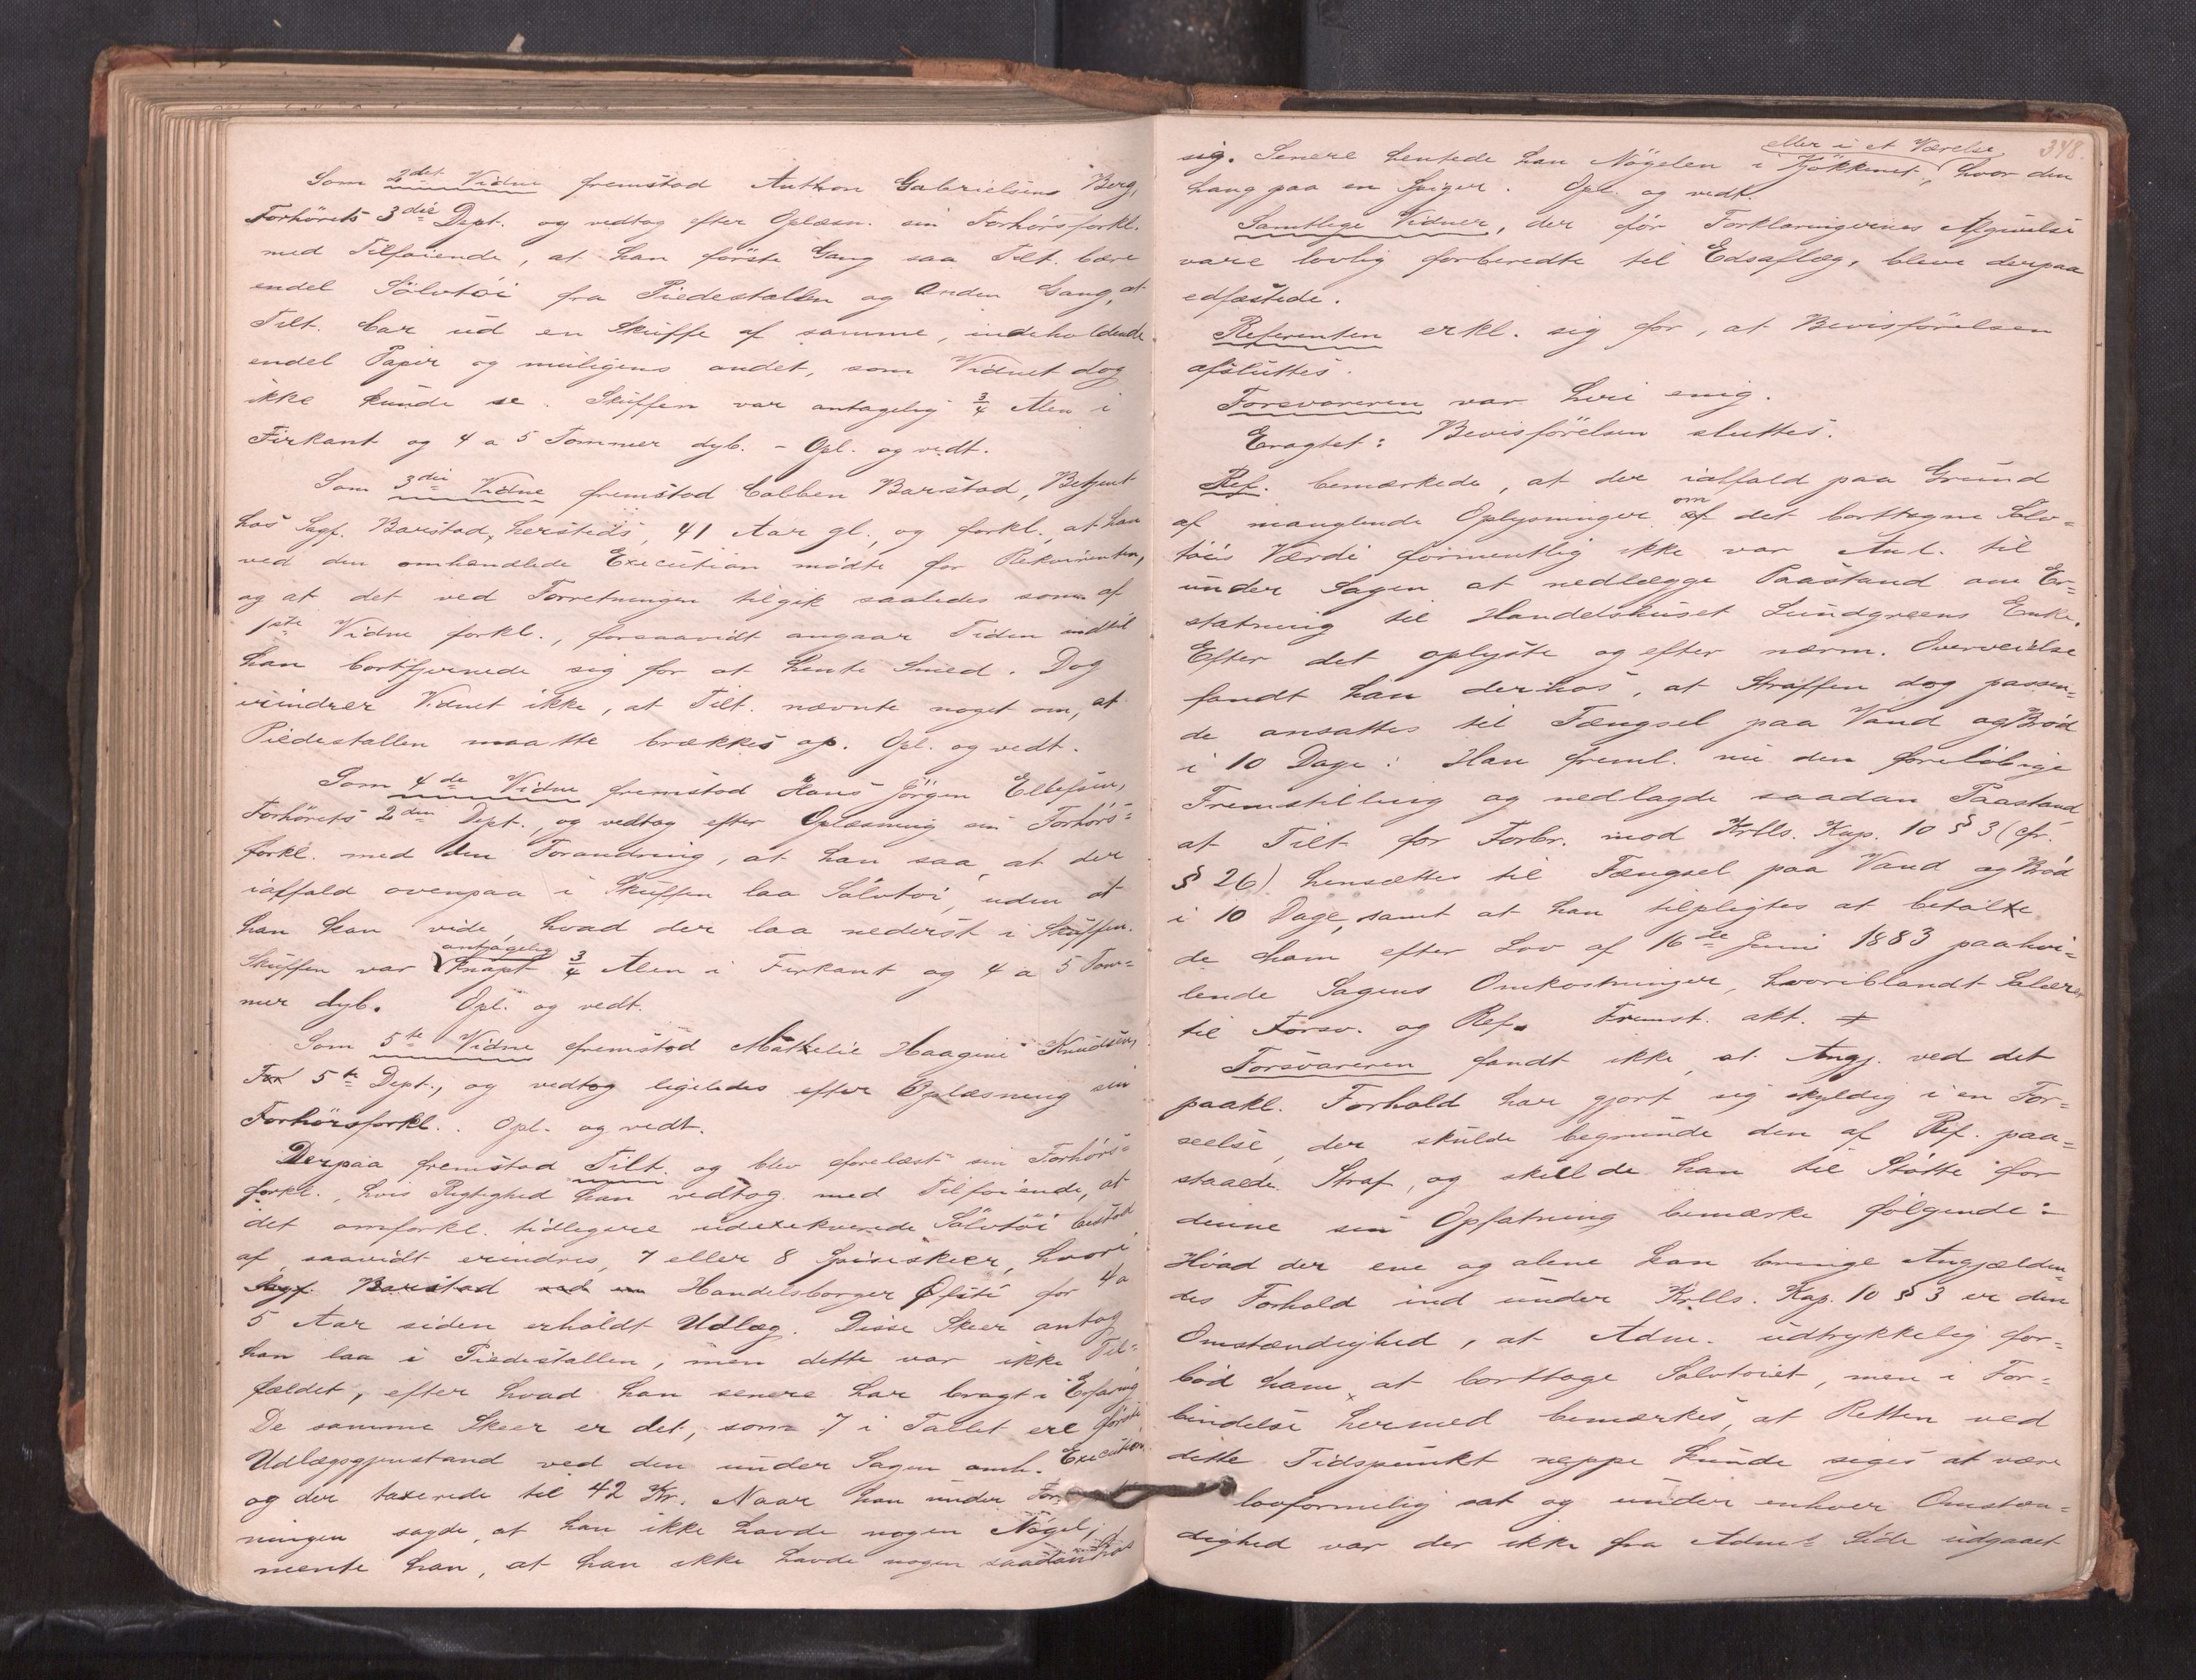 Som 2det Vidne fremstod Anthon Gabrielsens Berg,
Forhörets 3die Dept. og vedtog efter Oplæsn. sin Forhörsforkl.
med Tilföiende, at han förste Gang saa Tilt. bære
endel Sölvtöi fra Piedestallen og Anden Gang, at
Tilt. bar ud en Skuffe af samme, indeholdende
endel Papir og muligens andet, som Vidnet dog
ikke kunde se. Skuffen var antagelig 3/4 Alen i
Firkant og 4 a 5 Tommer dyb. - Opl. og vedt.
Som 3die Vidne fremstod Colben Barstad, Betjent
hos Sagf. Barstad, hersteds, 41 Aar gl., og forkl., at han
ved den omhandlede Execution mödte for Rekvirenten,
og at det ved Forretningen tilgik saaledes som af
1ste Vidne forkl., forsaavidt angaar Tiden indtil
han bortfjernede sig for at hente Smed. Dog
erindrer Vidnet ikke, at Tilt. nævnte noget om, at
Piedestallen maatte brækkes op. Opl. og vedt.
Som 4de Vidne fremstod Hans Jörgen Ellefsen,
Forhörets 2den Dept., og vedtog efter Oplæsning sin Forhörs-
forkl. med den Forandring, at han saa, at der
ialfald ovenpaa i Skuffen laa Sölvtöi, uden at
han kan vide, hvad der laa nederst i Skuffen.
Skuffen var antagelig knapt 3/4 Alen i Firkant og 4 a 5 Tom-
mer dyb. Opl. og vedt.
Som 5te Vidne fremstod Mathelie Haagine Knudsen,
For 5te Dept., og vedtog ligeledes efter Oplæsning sin
Forhörsforkl.. Opl. og vedt.
Derpaa fremstod Tilt. og blev forelæst sin Forhörs-
forkl., hvis Rigtighed han vedtog med Tilföiende, at
det omforkl. tidligere udexekverede Sölvtöi bestod
af, saavidt erindres, 7 eller 8 Spiseskeer, hvori
Sagf. Barstad ved en Handelsborger Öfsti for 4 a
5 Aar siden erholdt Udlæg. Disse Skeer antog
han laa i Piedestallen, men dette var ikke Til-
fældet, efter hvad han senere har bragt i Erfaring
De samme Skeer er det, som 7 i Tallet ere förste
Udlægsgjenstand ved den under Sagen omh. Execution
og der taxerede til 42 Kr. Naar han under For
ningen sagde, at han ikke havde nogen Nögel,
mente han, at han ikke havde nogen saadan hos
348.
sig. Senere hentede han Nögelen i Kjökkenet, eller i et Værelse, hvor den
hang paa en Spiger. Opl. og vedt.
Samtlige Vidner, der för Forklaringernes Afgivelse
vare lovlig forberedte til Edsaflæg, bleve derpaa
edfæstede.
Referenten erkl. sig for, at Bevisförelsen
afsluttes.
Forsvareren var heri enig.
Eragtet: Bevisförelsen sluttes.
Ref. bemærkede, at der ialfald paa Grund
af manglende Oplysninger af om det borttagne Sölv-
töis Værdi formentlig ikke var Anl. til
under Sagen at nedlægge Paastand om Er-
statning til Handelshuset Lundgreens Enke.
Efter det oplyste og efter nærm. Overveielse
fandt han derhos, at Straffen dog passen-
de ansattes til Fængsel paa Vand og Bröd
i 10 Dage: Han freml. nu den forelöbige
Fremstilling og nedlagde saadan Paastand,
at Tilt. for Forbr. mod Krlls. Kap. 10 § 3 (cfr.
§ 26) hensættes til Fængsel paa Vand og Bröd
i 10 Dage, samt at han tilpligtes at betale
de ham efter Lov af 16de Juni 1883 paahvi-
lende Sagens Omkostninger, hvoriblandt Salærer
til Forsv. og Ref. Fremst. akt.
Forsvareren fandt ikke, at Angj. ved det
paakl. Forhold har gjort sig skyldig i en For-
seelse, der skulde begrunde den af Ref. paa-
staaede Straf, og skulde han til Stötte for
denne sin Opfatning bemærke fölgende:
Hvad der ene og alene kan bringe Angjælden-
des Forhold ind under Krlls. Kap. 10 § 3 er den
Omstændighed, at Adm. udtrykkelig for-
böd ham at borttage Sölvtöiet, men i For-
bindelse hermed bemærkes, at Retten ved
dette Tidspunkt neppe kunde siges at være
lovformelig sat og under enhver Omstæn-
dighed var der ikke fra Adm.s Side udgaaet